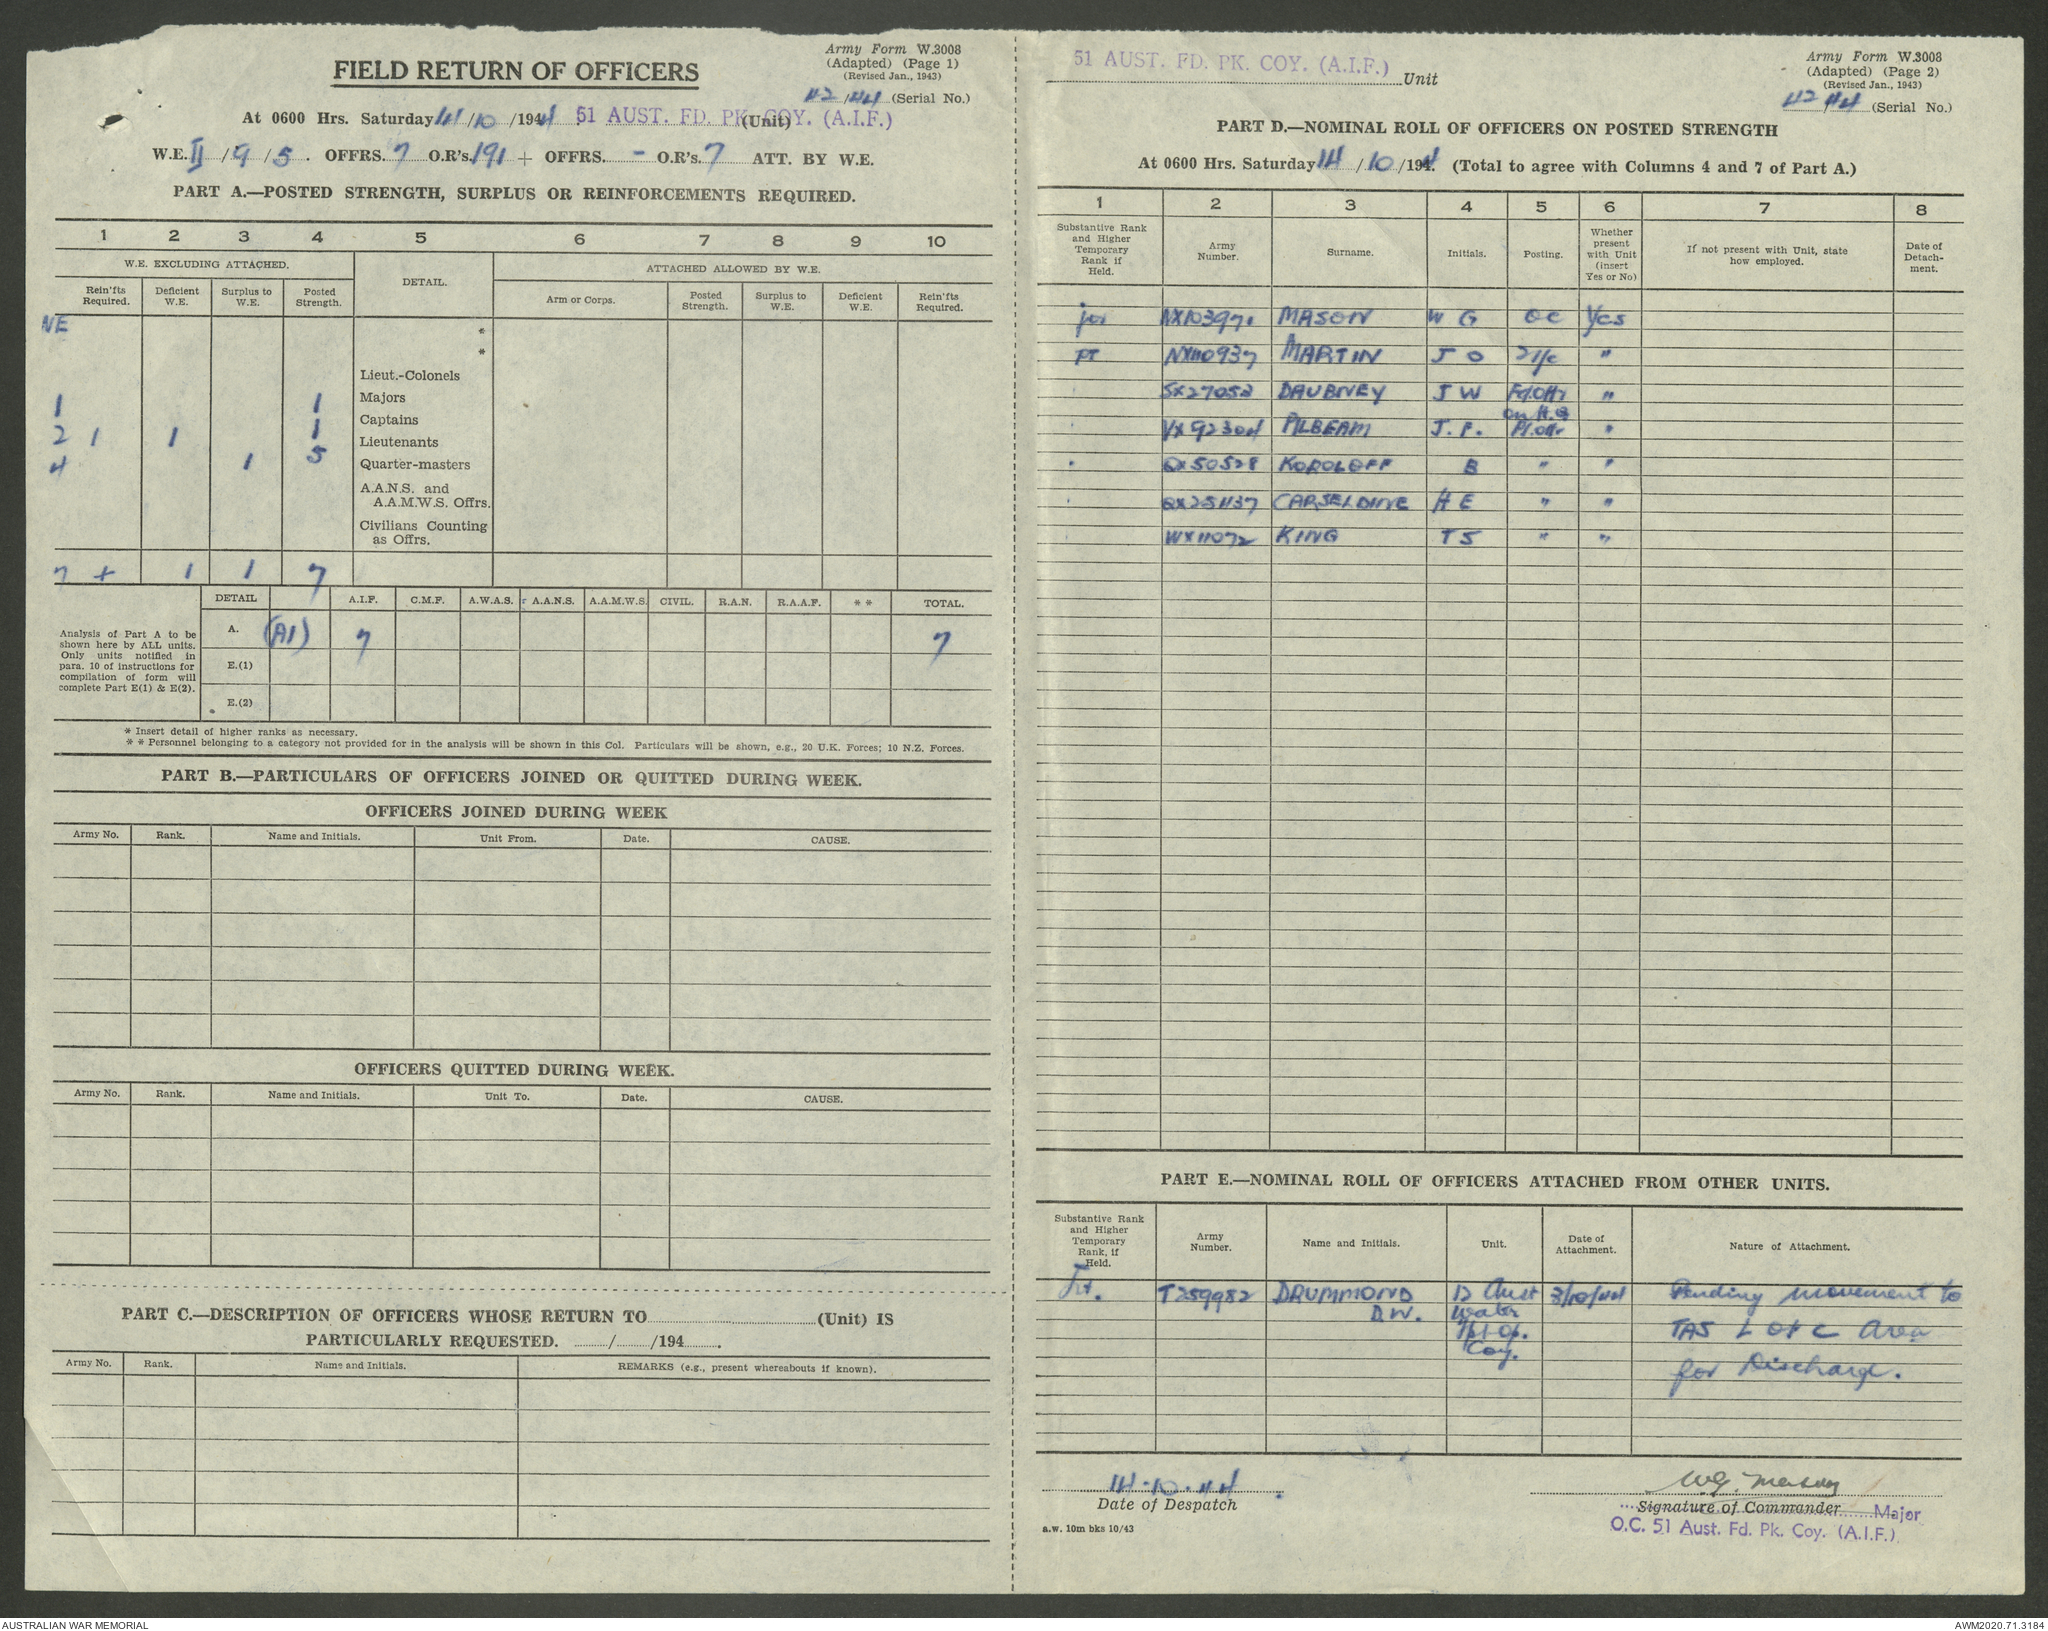 Army Form W.3008
(Adapted) (Page 1)
(Revised Jan., 1943)
FIELD RETURN OF OFFICERS
42/44 (Serial No.)
At 0600 Hrs. Saturday 14/10/1944 51 AUST. FD. PK. COY. (A.I.F.) (Unit)
W.E. II/9/5. OFFRS. 7 O.R's. 191 + OFFRS. - O.R's. 7 ATT. BY W.E.
PART A.—POSTED STRENGTH, SURPLUS OR REINFORCEMENTS REQUIRED.
1 2 3 4 5 6 7 8 9 10
W.E. EXCLUDING ATTACHED. DETAIL. ATTACHED ALLOWED BY W.E.
Rein'fts Required. Deficient W.E. Surplus to W.E. Posted Strength. Arm or Corps. Posted Strength. Surplus to W.E. Deficient W.E. Rein'fts Required.
*
*
Lieut.-Colonels
1 1 Majors
2 1 1 1 Captains
4 1 5 Lieutenants
Quarter-masters
A.A.N.S. and
A.A.M.W.S. Offrs.
Civilians Counting
as Offrs.
7 + 1 1 7
DETAIL A.I.F. C.M.F. A.W.A.S. A.A.N.S. A.A.M.W.S. CIVIL. R.A.N. R.A.A.F. * * TOTAL.
A. (A1) 7 7
E.(1)
E.(2)
Analysis of Part A to be
shown here by ALL units.
Only units notified in
para. 10 of instructions for
compilation of form will
complete Part E(1) & E(2).
* Insert detail of higher ranks as necessary.
* * Personnel belonging to a category not provided for in the analysis will be shown in this Col. Particulars will be shown, e.g., 20 U.K. Forces; 10 N.Z. Forces.
PART B.—PARTICULARS OF OFFICERS JOINED OR QUITTED DURING WEEK.
OFFICERS JOINED DURING WEEK
Army No. Rank. Name and Initials. Unit From. Date. CAUSE.
OFFICERS QUITTED DURING WEEK.
Army No. Rank. Name and Initials. Unit To. Date. CAUSE.
PART C.—DESCRIPTION OF OFFICERS WHOSE RETURN TO (Unit) IS
PARTICULARLY REQUESTED. / /194 .
Army No. Rank. Name and Initials. REMARKS (e.g., present whereabouts if known).
51 AUST. FD. PK. COY. (A.I.F.) Unit
Army Form W.3008
(Adapted) (Page 2)
(Revised Jan., 1943)
42/44 (Serial No.)
PART D.—NOMINAL ROLL OF OFFICERS ON POSTED STRENGTH
At 0600 Hrs. Saturday 14/10/1944. (Total to agree with Columns 4 and 7 of Part A.)
1 2 3 4 5 6 7 8
Substantive Rank and Higher Temporary Rank if Held. Army Number. Surname. Initials. Posting. Whether present with Unit (insert Yes or No) If not present with Unit, state how employed. Date of Detachment.
MASON W G OC Yes
NX110937 MARTIN J O 2 i/c "
SX27052 DAUBNEY J W Fd. Offr "
on H.Q
VX92304 PILBEAM J. F. Pl. Offr "
QX50528 KOROLOFF B " "
CARSELDINE H E " "
WX11072 KING T S " "
PART E.—NOMINAL ROLL OF OFFICERS ATTACHED FROM OTHER UNITS.
Substantive Rank and Higher Temporary Rank, if Held. Army Number. Name and Initials. Unit. Date of Attachment. Nature of Attachment.
T259982 DRUMMOND 12 Aust 3/10/44 Pending movement to
D.W. Water TAS L of C Area
Coy. for Discharge.
14.10.44
Date of Despatch
a.w. 10m bks 10/43
W.G. Mason
Signature of Commander Major
O.C. 51 Aust. Fd. Pk. Coy. (A.I.F.)
AUSTRALIAN WAR MEMORIAL
AWM2020.71.3184